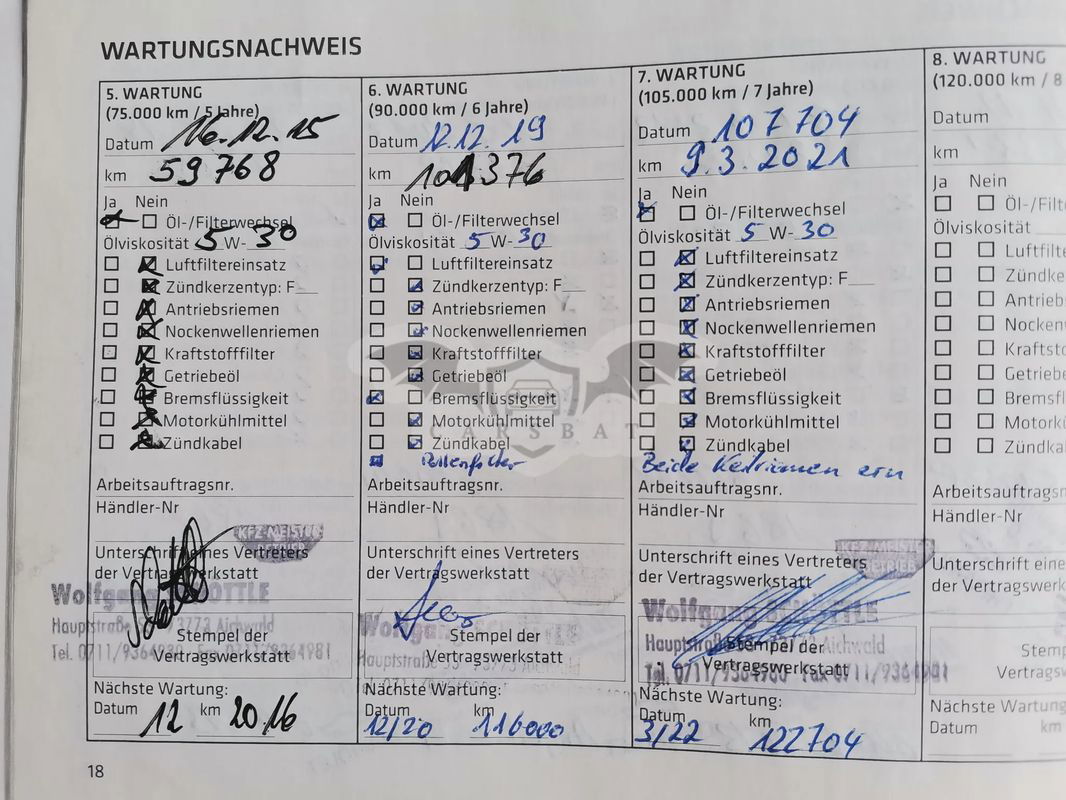 WARTUNGSNACHWEIS
5. WARTUNG
(75.000 km / 5 Jahre)
Datum 16.12.15
km 59768
Ja Nein
Öl-/Filterwechsel
Ölviskosität 5 W-30
Luftfiltereinsatz
Zündkerzentyp: F
Antriebsriemen
Nockenwellenriemen
Kraftstofffilter
Getriebeöl
Bremsflüssigkeit
Motorkühlmittel
Zündkabel
Arbeitsauftragsnr.
Händler-Nr
KFZ-MEISTER
Unterschrift eines Vertreters
der Vertragswerkstatt
Wolfgang
Hauptstraße 73773 Aichwald
Tel. 0711/9364980 Fax 0711/9364981
Stempel der
Vertragswerkstatt
Nächste Wartung:
Datum 12 km 2016
6. WARTUNG
(90.000 km / 6 Jahre)
Datum 12.12.19
km 101376
Ja Nein
Öl-/Filterwechsel
Ölviskosität 5 W-30
Luftfiltereinsatz
Zündkerzentyp: F
Antriebsriemen
Nockenwellenriemen
Kraftstofffilter
Getriebeöl
Bremsflüssigkeit
Motorkühlmittel
Zündkabel
Pollenfilter
Arbeitsauftragsnr.
Händler-Nr
Unterschrift eines Vertreters
der Vertragswerkstatt
Wolfgang
Hauptstraße
Stempel der
Vertragswerkstatt
Nächste Wartung:
Datum km
12/20 116000
7. WARTUNG
(105.000 km / 7 Jahre)
Datum 107704
km 9.3.2021
Ja Nein
Öl-/Filterwechsel
Ölviskosität 5 W-30
Luftfiltereinsatz
Zündkerzentyp: F
Antriebsriemen
Nockenwellenriemen
Kraftstofffilter
Getriebeöl
Bremsflüssigkeit
Motorkühlmittel
Zündkabel
Beide Keilriemen ern
Arbeitsauftragsnr.
Händler-Nr
KFZ-MEISTER
BETRIEB
Unterschrift eines Vertreters
der Vertragswerkstatt
Wolfgang
Hauptstraße Aichwald
Tel. 0711/9364980 Fax 0711/9364981
Stempel der
Vertragswerkstatt
Nächste Wartung:
Datum km
3/22 122704
8. WARTUNG
(120.000 km / 8
Datum
km
Ja Nein
Öl-/F
Ölviskosität
Luftfilte
Zündke
Antrieb
Nocken
Kraftst
Getrieb
Bremsf
Motork
Zündka
Arbeitsauftragsn
Händler-Nr
Unterschrift eines
der Vertragswerk
Stemp
Vertragsw
Nächste Wartung
Datum km
CARSBAT
18